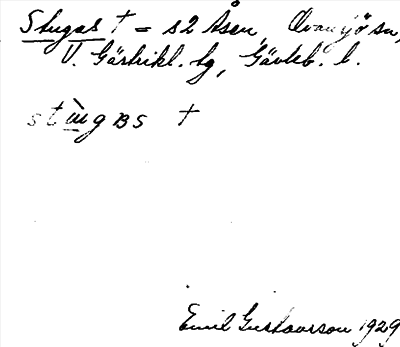 Stugas † = s2 Åsen, Ovansjö sn,
V. Gästrikl. tg, Gävleb. l.
stùgas †
Emil Gustavsson 1929